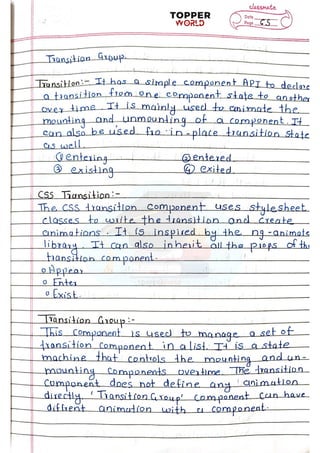 classmate
TOPPER
WORLD
Date
Page 65
Transition Group.
Transition:- It has a simple component API to declare
a transition from one component state to another
over time. It is mainly used to animate the
mounting and unmounting of a component. It
can also be used for in-place transition state
as well.
① entering ② entered.
③ existing ④ exited.
CSS Transition:-
The CSS transition component uses stylesheet
classes to write the transition and create
animations. It is inspired by the ng-animate
library. It can also inherit all the props of th
transition component.
o Appear
o Enter
o Exist.
Transition Group:-
This component is used to manage a set of
transition component in a list. It is a state
machine that controls the mounting and un-
mounting components overtime. The transition
component does not define any animation
directly. 'Transition Group' component can have
diffrent animation with a component.